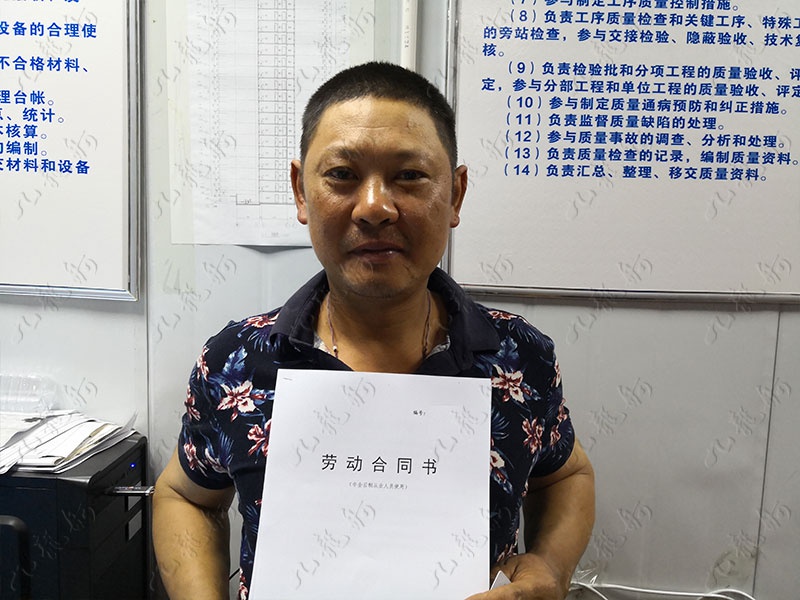 设备的合理使
不合格材料、
理台帐。
点、统计。
本核算。
的编制。
交材料和设备
(7) 参与制定工序质量控制措施。
(8) 负责工序质量检查和关键工序、特殊工
的旁站检查，参与交接检验、隐蔽验收、技术复
核。
(9) 负责检验批和分项工程的质量验收、评
定，参与分部工程和单位工程的质量验收、评定
(10) 参与制定质量通病预防和纠正措施。
(11) 负责监督质量缺陷的处理。
(12) 参与质量事故的调查、分析和处理。
(13) 负责质量检查的记录，编制质量资料。
(14) 负责汇总、整理、移交质量资料。
编号：
劳动合同书